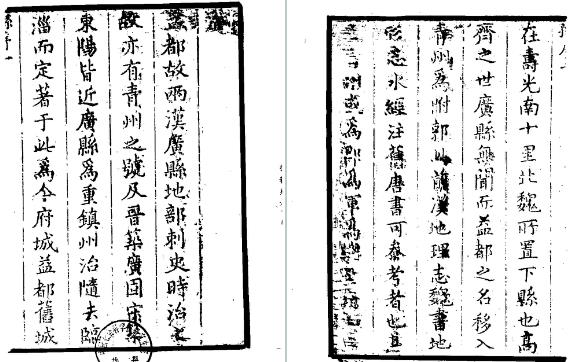 益都故西漢廣縣地部刺史時治之
故亦有青州之號及晉築廣固宋築
東陽皆近廣縣爲重鎮州治隨去臨
淄而定著于此爲今府城益都舊城
在壽光南十里北魏所置下縣也高
齊之世廣縣無聞而益都之名移入
青州爲附郭此前漢地理志魏書地
形志水經注舊唐書可參考者也
或爲郡爲軍爲